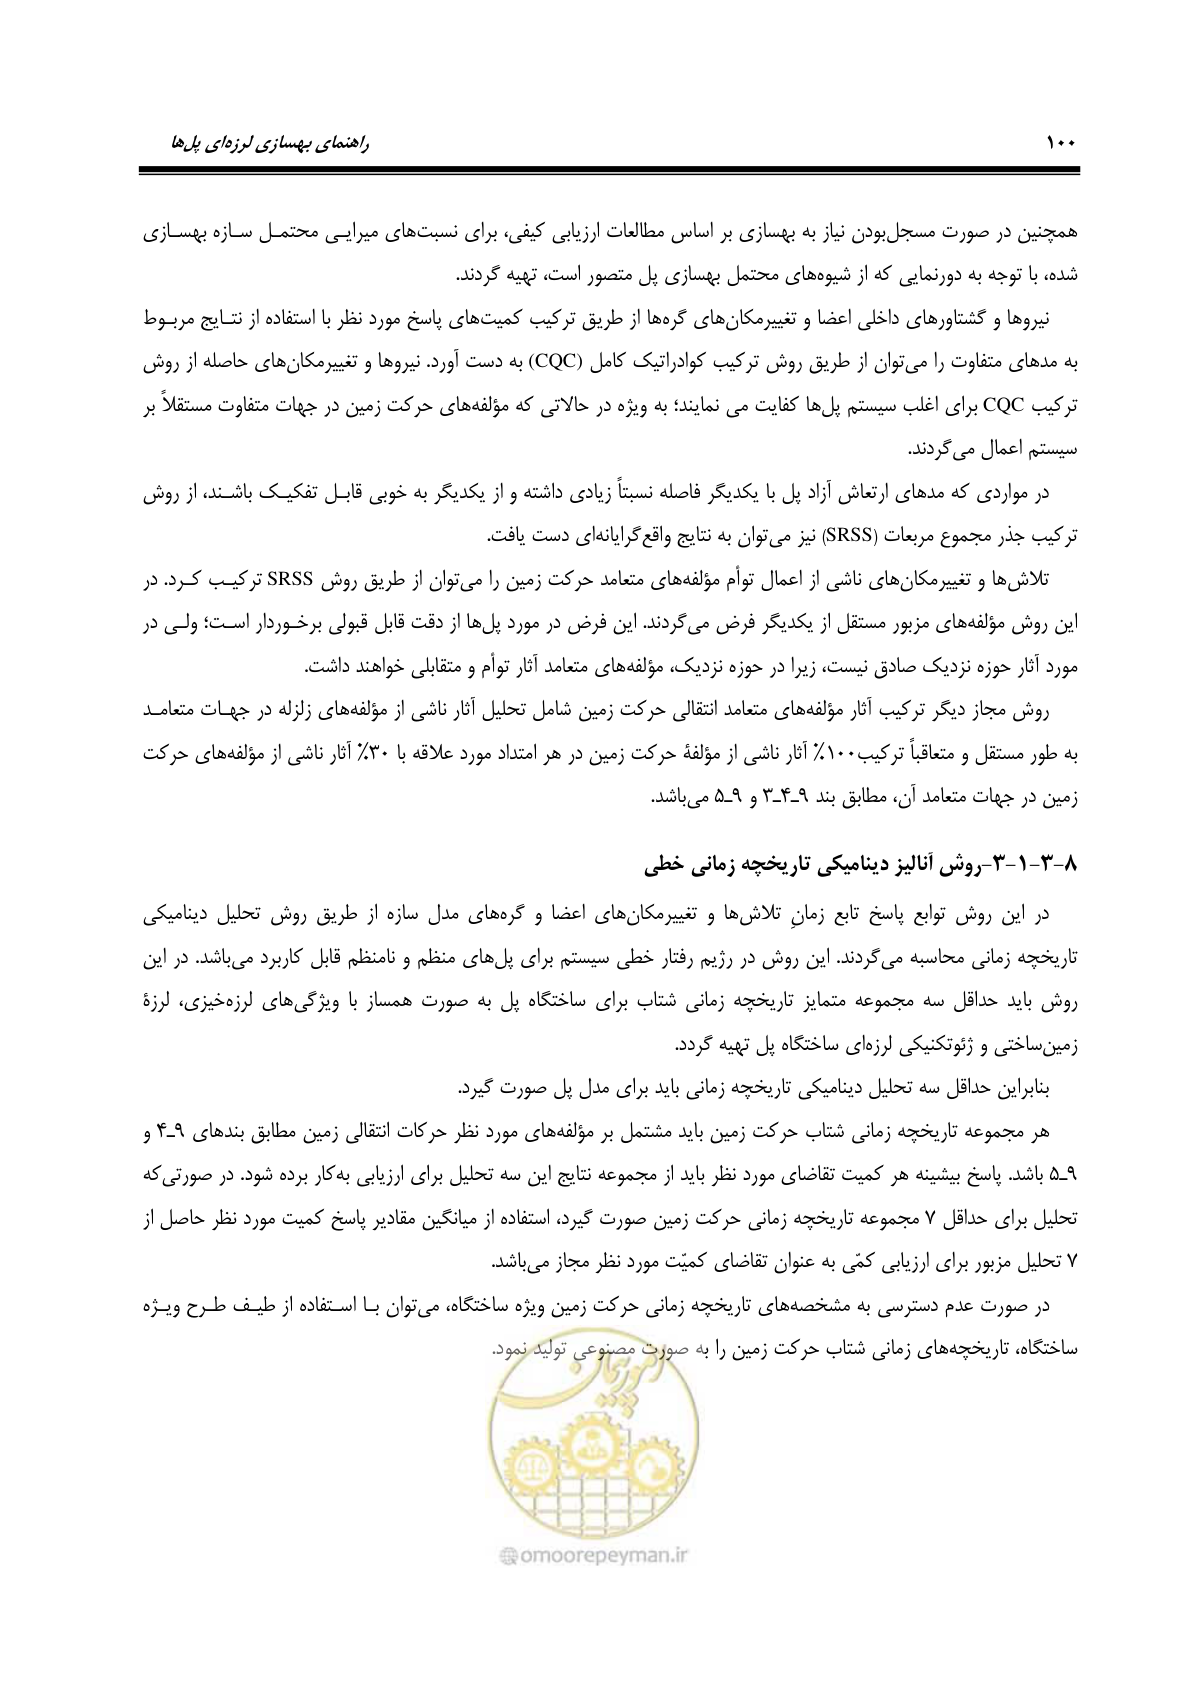 ۱۰۰ راهنمای بهسازی لرزه‌ای پل‌ها
همچنین در صورت مسجل‌بودن نیاز به بهسازی بر اساس مطالعات ارزیابی کیفی، برای نسبت‌های میرایی محتمل سازه بهسازی
شده، با توجه به دورنمایی که از شیوه‌های محتمل بهسازی پل متصور است، تهیه گردند.
نیروها و گشتاورهای داخلی اعضا و تغییرمکان‌های گره‌ها از طریق ترکیب کمیت‌های پاسخ مورد نظر با استفاده از نتایج مربوط
به مدهای متفاوت را می‌توان از طریق روش ترکیب کوادراتیک کامل (CQC) به دست آورد. نیروها و تغییرمکان‌های حاصله از روش
ترکیب CQC برای اغلب سیستم پل‌ها کفایت می نمایند؛ به ویژه در حالاتی که مؤلفه‌های حرکت زمین در جهات متفاوت مستقلاً بر
سیستم اعمال می‌گردند.
در مواردی که مدهای ارتعاش آزاد پل با یکدیگر فاصله نسبتاً زیادی داشته و از یکدیگر به خوبی قابل تفکیک باشند، از روش
ترکیب جذر مجموع مربعات (SRSS) نیز می‌توان به نتایج واقع‌گرایانه‌ای دست یافت.
تلاش‌ها و تغییرمکان‌های ناشی از اعمال توأم مؤلفه‌های متعامد حرکت زمین را می‌توان از طریق روش SRSS ترکیب کرد. در
این روش مؤلفه‌های مزبور مستقل از یکدیگر فرض می‌گردند. این فرض در مورد پل‌ها از دقت قابل قبولی برخوردار است؛ ولی در
مورد آثار حوزه نزدیک صادق نیست، زیرا در حوزه نزدیک، مؤلفه‌های متعامد آثار توأم و متقابلی خواهند داشت.
روش مجاز دیگر ترکیب آثار مؤلفه‌های متعامد انتقالی حرکت زمین شامل تحلیل آثار ناشی از مؤلفه‌های زلزله در جهات متعامد
به طور مستقل و متعاقباً ترکیب۱۰۰٪ آثار ناشی از مؤلفهٔ حرکت زمین در هر امتداد مورد علاقه با ۳۰٪ آثار ناشی از مؤلفه‌های حرکت
زمین در جهات متعامد آن، مطابق بند ۹ـ۴ـ۳ و ۹ـ۵ می‌باشد.
۸-۳-۱-۳-روش آنالیز دینامیکی تاریخچه زمانی خطی
در این روش توابع پاسخ تابع زمانِ تلاش‌ها و تغییرمکان‌های اعضا و گره‌های مدل سازه از طریق روش تحلیل دینامیکی
تاریخچه زمانی محاسبه می‌گردند. این روش در رژیم رفتار خطی سیستم برای پل‌های منظم و نامنظم قابل کاربرد می‌باشد. در این
روش باید حداقل سه مجموعه متمایز تاریخچه زمانی شتاب برای ساختگاه پل به صورت همساز با ویژگی‌های لرزه‌خیزی، لرزهٔ
زمین‌ساختی و ژئوتکنیکی لرزه‌ای ساختگاه پل تهیه گردد.
بنابراین حداقل سه تحلیل دینامیکی تاریخچه زمانی باید برای مدل پل صورت گیرد.
هر مجموعه تاریخچه زمانی شتاب حرکت زمین باید مشتمل بر مؤلفه‌های مورد نظر حرکات انتقالی زمین مطابق بندهای ۹ـ۴ و
۹ـ۵ باشد. پاسخ بیشینه هر کمیت تقاضای مورد نظر باید از مجموعه نتایج این سه تحلیل برای ارزیابی به‌کار برده شود. در صورتی‌که
تحلیل برای حداقل ۷ مجموعه تاریخچه زمانی حرکت زمین صورت گیرد، استفاده از میانگین مقادیر پاسخ کمیت مورد نظر حاصل از
۷ تحلیل مزبور برای ارزیابی کمّی به عنوان تقاضای کمیّت مورد نظر مجاز می‌باشد.
در صورت عدم دسترسی به مشخصه‌های تاریخچه زمانی حرکت زمین ویژه ساختگاه، می‌توان با استفاده از طیف طرح ویژه
ساختگاه، تاریخچه‌های زمانی شتاب حرکت زمین را به صورت مصنوعی تولید نمود.
امور پیمان
omoorepeyman.ir